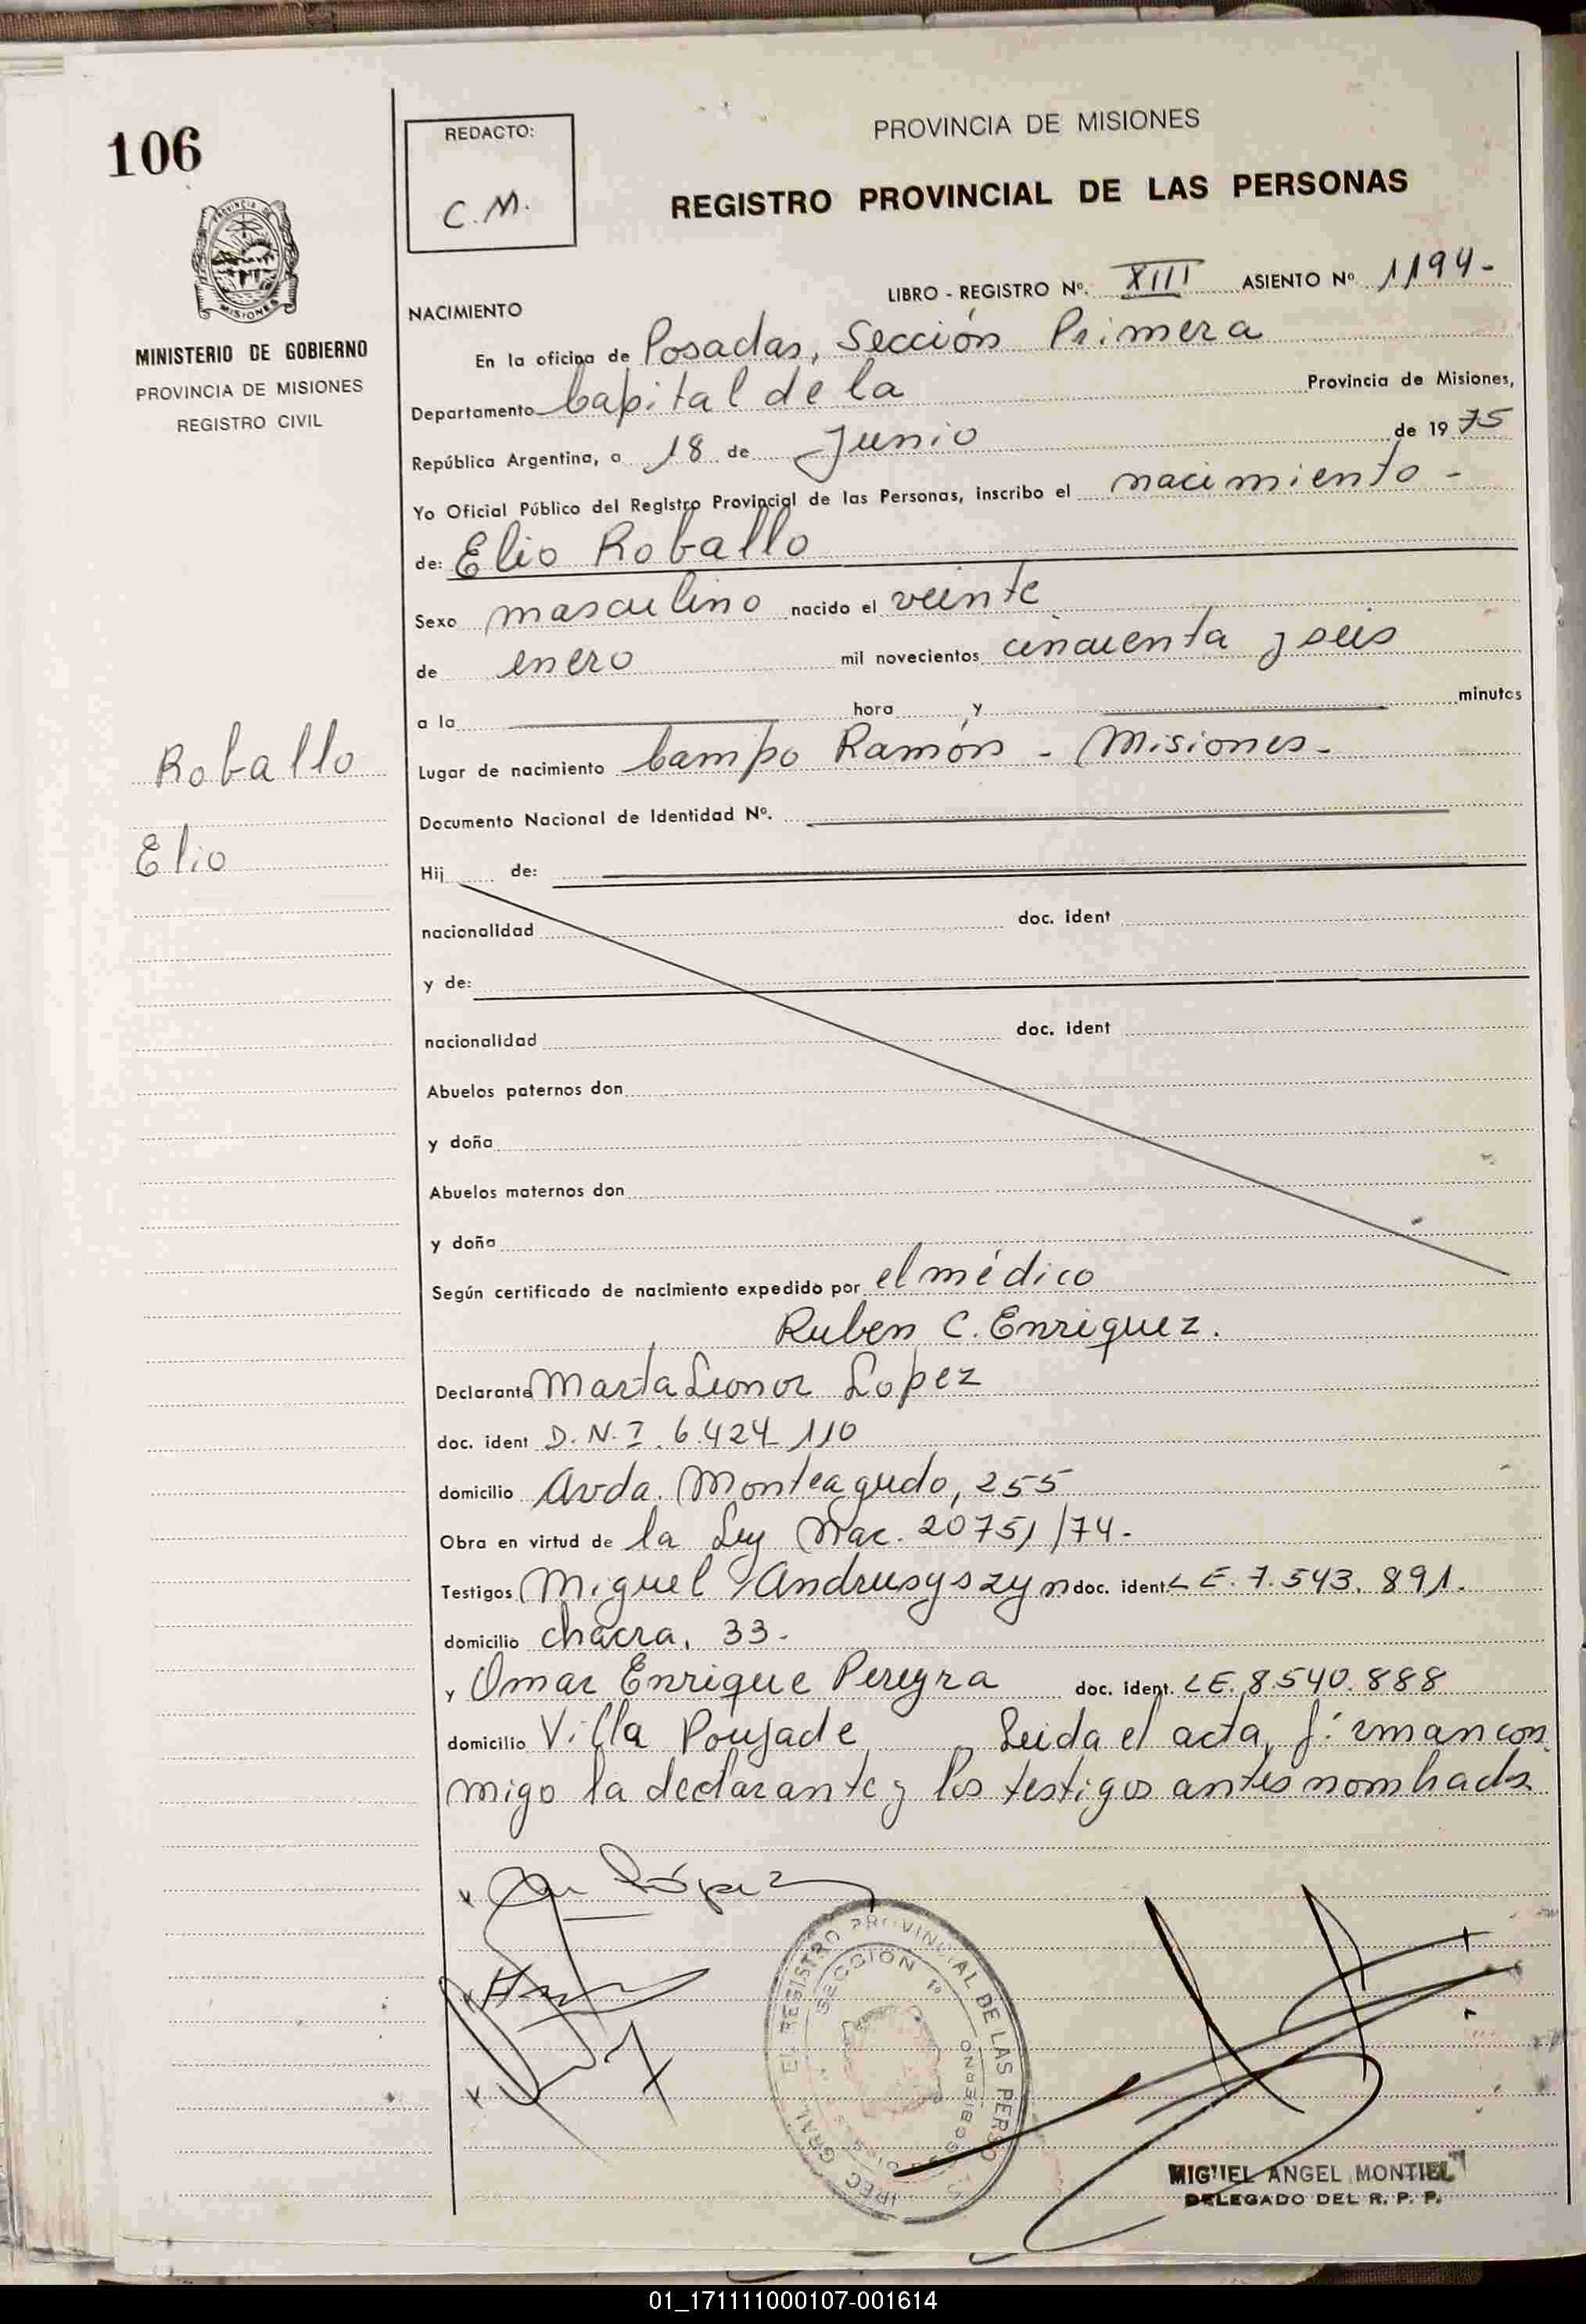 106
PROVINCIA DE MISIONES
MINISTERIO DE GOBIERNO
PROVINCIA DE MISIONES
REGISTRO CIVIL
Roballo
Elio
REDACTO:
C.M.
PROVINCIA DE MISIONES
REGISTRO PROVINCIAL DE LAS PERSONAS
LIBRO - REGISTRO Nº. XIII ASIENTO Nº 1194-
NACIMIENTO
En la oficina de Posadas, Sección Primera
Departamento Capital de la Provincia de Misiones,
República Argentina, a 18 de Junio de 1975
Yo Oficial Público del Registro Provincial de las Personas, inscribo el nacimiento -
de: Elio Roballo
Sexo masculino nacido el veinte
de enero mil novecientos cincuenta y seis
a la hora y minutos
Lugar de nacimiento Campo Ramón - Misiones-
Documento Nacional de Identidad Nº.
Hij de:
nacionalidad doc. ident
y de:
nacionalidad doc. ident
Abuelos paternos don
y doña
Abuelos maternos don
y doña
Según certificado de nacimiento expedido por el médico
Ruben C. Enriquez.
Declarante Marta Leonor Lopez
doc. ident D.N.I. 6.424.110
domicilio Avda. Monteagudo, 255
Obra en virtud de la Ley Nac. 20751/74-
Testigos Miguel Andrusyszyn doc. ident LE. 7.543.891.
domicilio chacra, 33-
y Omar Enrique Pereyra doc. ident. LE. 8.540.888
domicilio Villa Poujade Leida el acta, firman con
migo la declarante y los testigos antes nombrados
López
REGISTRO PROVINCIAL DE LAS PERSO
SECCIÓN 1º
MIGUEL ANGEL MONTIEL
DELEGADO DEL R. P. P.
01_171111000107-001614